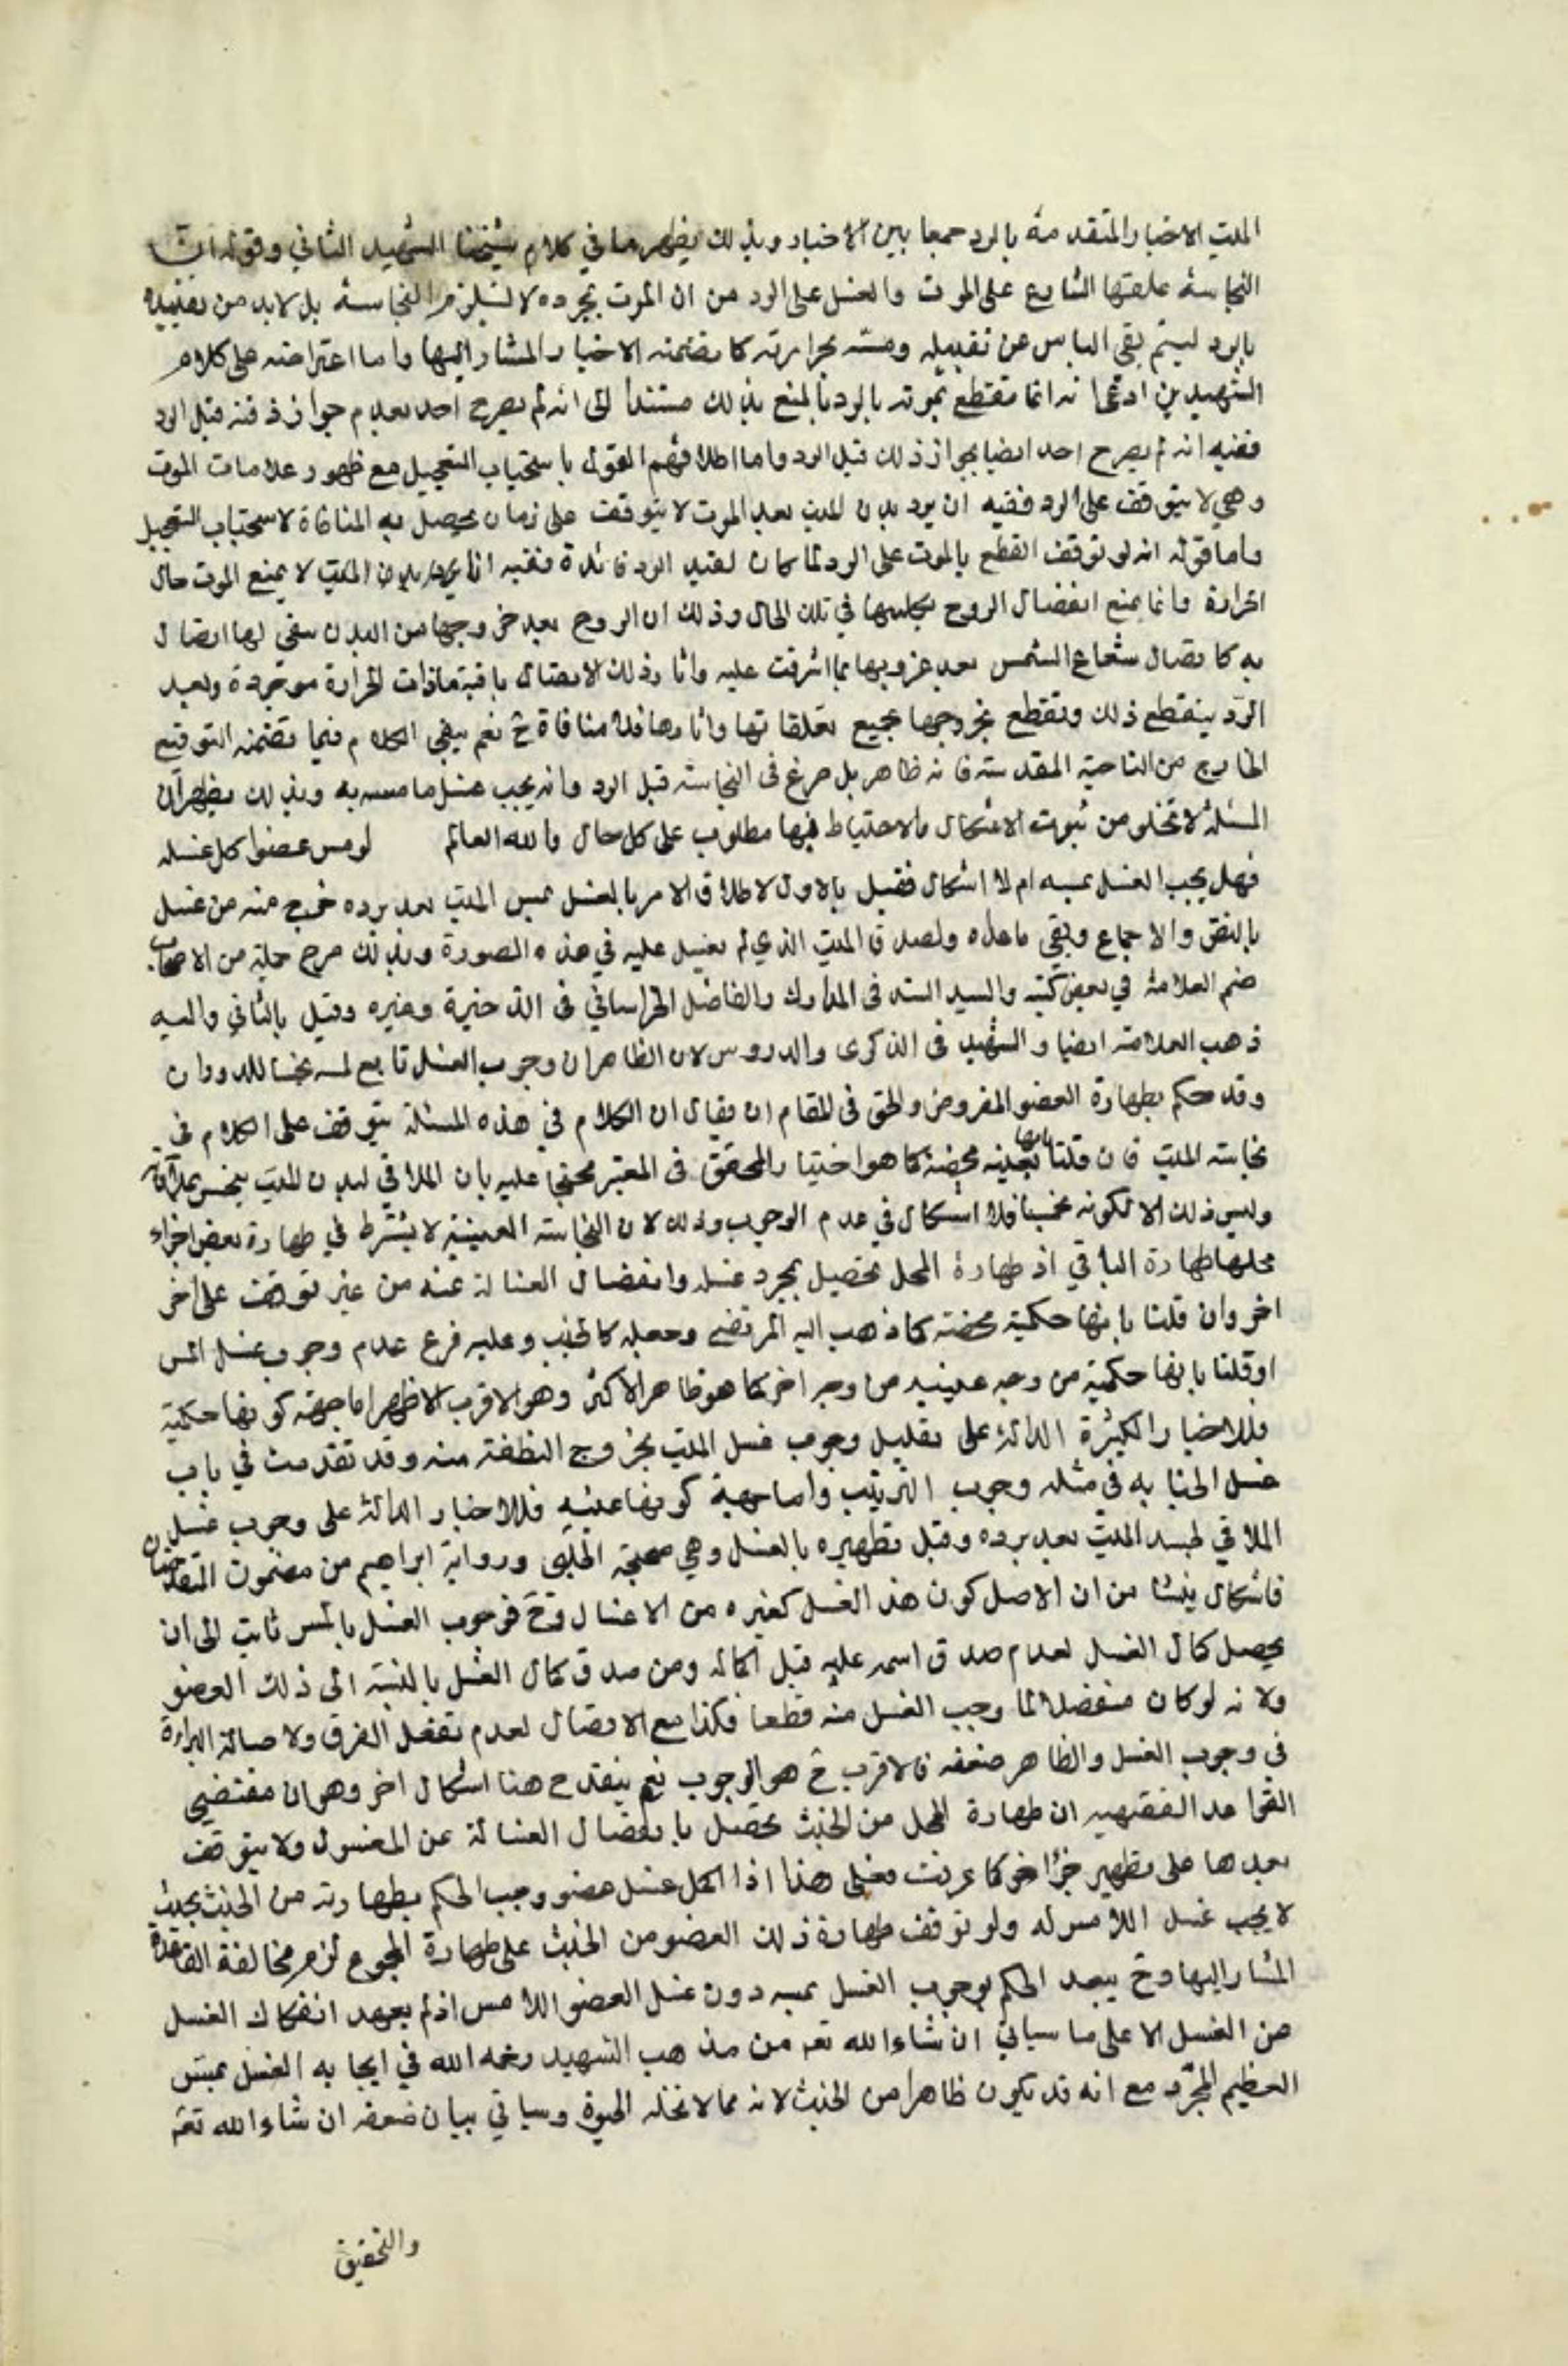 الميت الاخبار المتقدمة بالبرد جمعا بين الاخبار وبذلك يظهر ما في كلام شيخنا الشهيد الثاني وقوله ان
النجاسة علقها الشارع على الموت والغسل على البرد من ان الموت بمجرده لا يستلزم النجاسة بل لا بد من تقييده
بالبرد ليتم بقي الباس عن تقبيله ومسه بحرارته كما تضمنه الاخبار المشار اليها واما اعتراضه على كلام
الشهيد من ادعى انه انما نقطع بموته بالبرد بالمنع بذلك مستندا الى انه لم يصرح احد بعدم جواز دفنه قبل البرد
ففيه انه لم يصرح احد ايضا بجواز ذلك قبل البرد واما اطلاقهم القول باستحباب التعجيل مع ظهور علامات الموت
وهي لا يتوقف على البرد ففيه ان برد بدن الميت بعد الموت لا يتوقف على زمان يحصل به المنافاة لاستحباب التعجيل
واما قوله انه لو توقف القطع بالموت على البرد لما كان لقيد البرد فائدة ففيه ان بدن الميت لا يمنع الموت حال
الحرارة وانما يمنع انفصال الروح بكليتها في تلك الحال وذلك ان الروح بعد خروجها من البدن يبقى لها اتصال
به كاتصال شعاع الشمس بعد غروبها بما اشرقت عليه واثار ذلك الاتصال باقية مادامت الحرارة موجودة وبعد
البرد ينقطع ذلك وتقطع بخروجها جميع تعلقاتها واثارها فلا منافاة ح نعم يبقى الكلام فيما تضمنه التوقيع
الخارج من الناحية المقدسة فانه ظاهر بل صرع في النجاسة قبل البرد وانه يجب غسل ما مسه به وبذلك يظهر ان
المسئلة لا تخلو من ثبوت الاشكال والاحتياط فيها مطلوب على كل حال والله العالم لو مس عضوا كمل غسله
فهل يجب الغسل بمسه ام لا اشكال فقيل بالاول لاطلاق الامر بالغسل بمس الميت بعد برده خرج منه من غسل
بالنص والاجماع وبقي ما عداه ولصدق الميت الذي لم يغسل عليه في هذه الصورة وبذلك صرح جملة من الاصحاب
منهم العلامة في بعض كتبه والسيد السند في المدارك والفاضل الخراساني في الذخيرة وغيره وقيل بالثاني واليه
ذهب العلامة ايضا والشهيد في الذكرى والدروس لان الظاهر ان وجوب الغسل تابع لمسه نجسا للدوران
وقد حكم بطهارة العضو المفروض والحق في المقام ان يقال ان الكلام في هذه المسئلة يتوقف على الكلام في
نجاسة الميت فان قلنا بانها عينية محضة كما هو اختيار المحقق في المعتبر محتجا عليه بان الملاقي لبدن الميت ينجس بملاقاته
وليس ذلك الا لكونه نجسا فلا اشكال في عدم الوجوب وذلك لان النجاسة العينية لا يشترط في طهارة بعض اجزاء
محلها طهارة الباقي اذ طهارة المحل تحصيل بمجرد غسله وانفصال الغسالة عنه من غير توقف على اخر
اخر وان قلنا بانها حكمية محضة كما ذهب اليه المرتضى وجعله كالجنب وعليه فرع عدم وجوب غسل المس
او قلنا بانها حكمية من وجه عينيه من وجه اخر كما هو ظاهر الاكثر وهو الاقرب الاظهر اما جهة كونها حكمية
فللاخبار الكثيرة الدالة على تعليل وجوب غسل الميت بخروج النطفة منه وقد تقدمت في باب
غسل الجنابه في مثله وجوب الترتيب واما جهة كونها عينيه فللاخبار الدالة على وجوب غسل
الملاقي لجسد الميت بعد برده وقبل تطهيره بالغسل وهي صحيحة الحلبي ورواية ابراهيم بن ميمون المتقدمتان
فاشكال ينشا من ان الاصل كون هذا الغسل كغيره من الاغسال وح فوجوب الغسل بالمس ثابت الى ان
يحصل كمال الغسل لعدم صدق اسمه عليه قبل اكماله ومن صدق كمال الغسل بالنسبة الى ذلك العضو
ولانه لو كان منفصلا لما وجب الغسل منه قطعا فكذا مع الاتصال لعدم تعقل الفرق ولاصالة البراءة
في وجوب الغسل والظاهر ضعفه فالاقرب ح هو الوجوب نعم ينقدح هنا اشكال اخر وهو ان مقتضى
القواعد الفقهيه ان طهارة المحل من الخبث تحصل بانفصال الغسالة عن المغسول ولا يتوقف
بعدها على تطهير جزء اخر كما عرفت فعلى هذا اذا اكمل غسل عضو وجب الحكم بطهارته من الخبث بحيث
لا يجب غسل اللامس له ولو توقف طهارة ذلك العضو من الخبث على طهارة المجموع لزم مخالفة القاعدة
المشار اليها وح يبعد الحكم بوجوب الغسل بمسه دون غسل العضو اللامس اذ لم يعهد انفكاك الغسل
من الغسل الا على ما سياتي ان شاء الله تعه من مذهب الشهيد رحمه الله في ايجابه الغسل بمس
العظيم المجرد مع انه قد يكون طاهرا من الخبث لانه مما لا تحله الحيوة وسياتي بيان ضعفه ان شاء الله تعه
والتحقيق